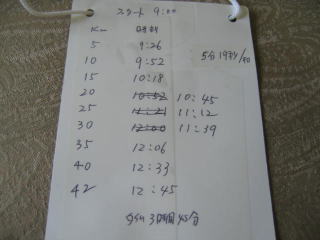 スタート 9:00
Km 時刻
5 9:26
10 9:52
15 10:18
20 10:52 10:45
25 11:21 11:12
30 12:00 11:39
35 12:06
40 12:33
42 12:45
3時間45分